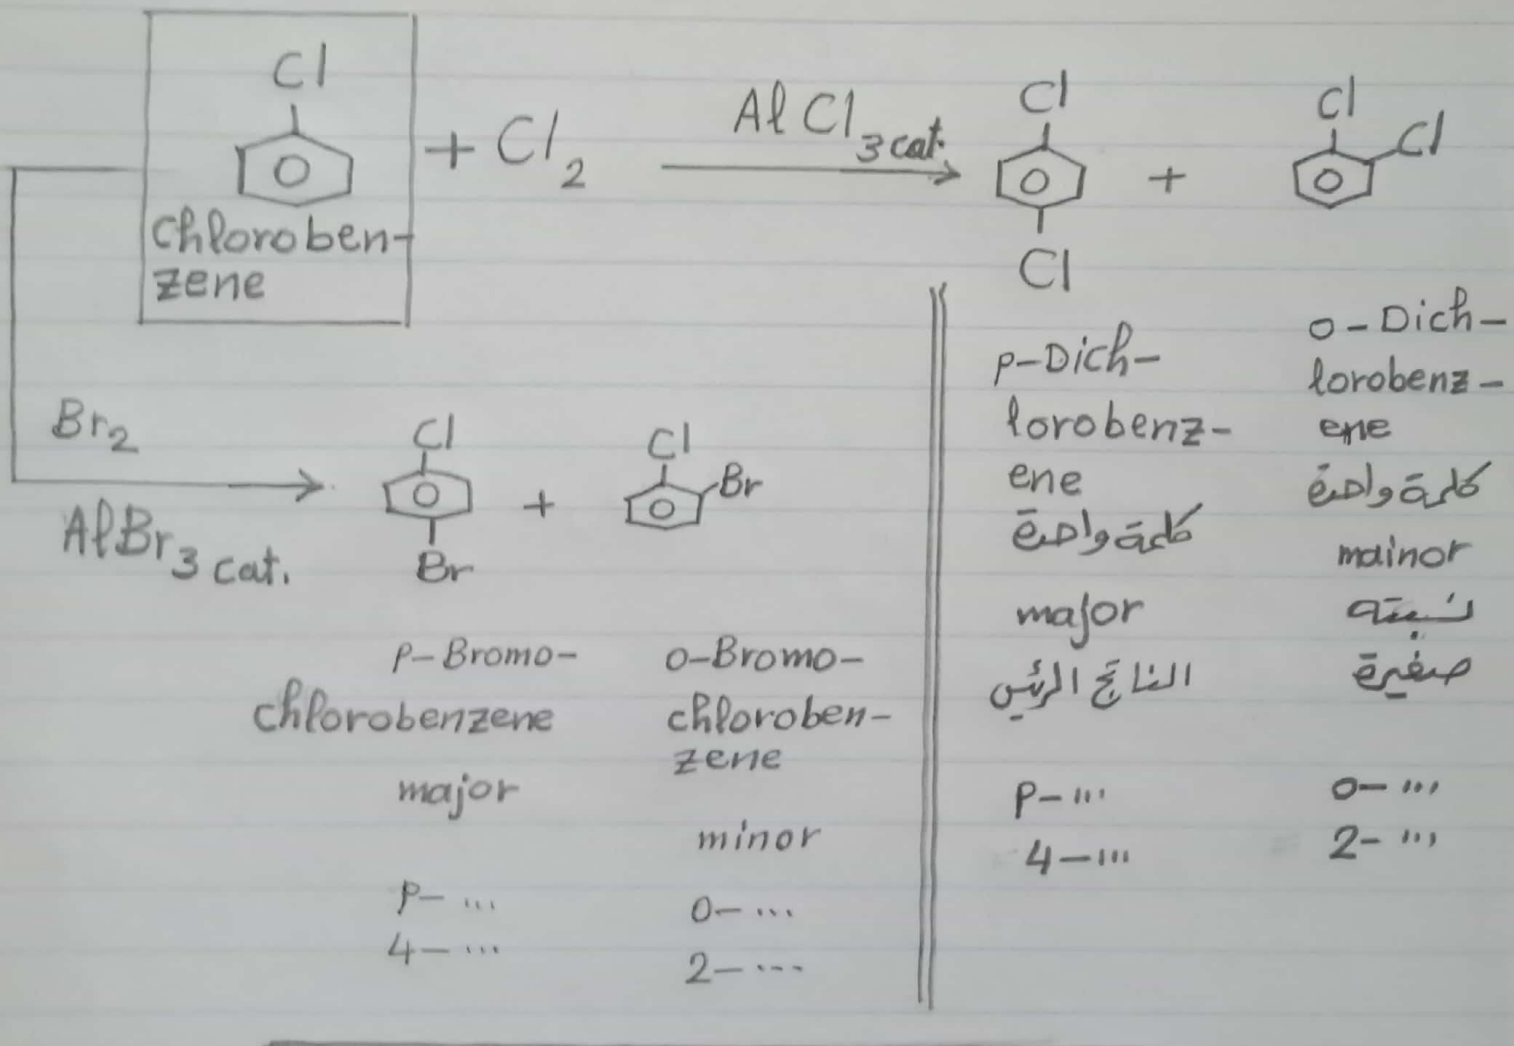 Cl
chloroben-
zene
+ Cl2
AlCl3 cat.
Cl
Cl
+
Cl
Cl
Br2
AlBr3 cat.
Cl
Br
+
Cl
Br
p-Bromo-
chlorobenzene
major
p- ...
4- ...
o-Bromo-
chloroben-
zene
minor
o- ...
2- ...
p-Dich-
lorobenz-
ene
كلمة واحدة
major
الناتج الرئيس
p- ...
4- ...
o-Dich-
lorobenz-
ene
كلمة واحدة
mainor
نسبته
صغيرة
o- ...
2- ...